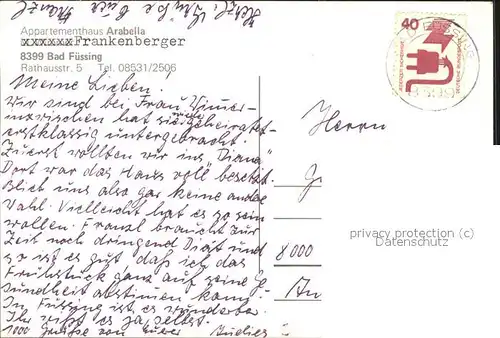 Herzl. Grüße Euer Franzl
Appartementhaus Arabella
xxxxxxFrankenberger
8399 Bad Füssing
Rathausstr. 5 Tel. 08531/2506
40
8399
Meine Lieben!
Wir sind bei Frau
inzwischen hat sie geheiratet
erstklassig untergebracht.
Zuerst wollten wir ins "Diana"
Dort war das Haus voll besetzt.
Blieb uns also gar keine andre
Wahl. Vielleicht hat es so sein
wollen. Franzl braucht zur
Zeit noch dringend Diät und
so ist es gut, daß ich das
Frühstück ganz auf seine Ge-
sundheit abstimmen kann.
In Füssing ist es wunderbar.
Ihr wißt es ja selbst.
1000 Grüsse von Eurer
Herrn
8000
An
privacy protection (c)
Datenschutz